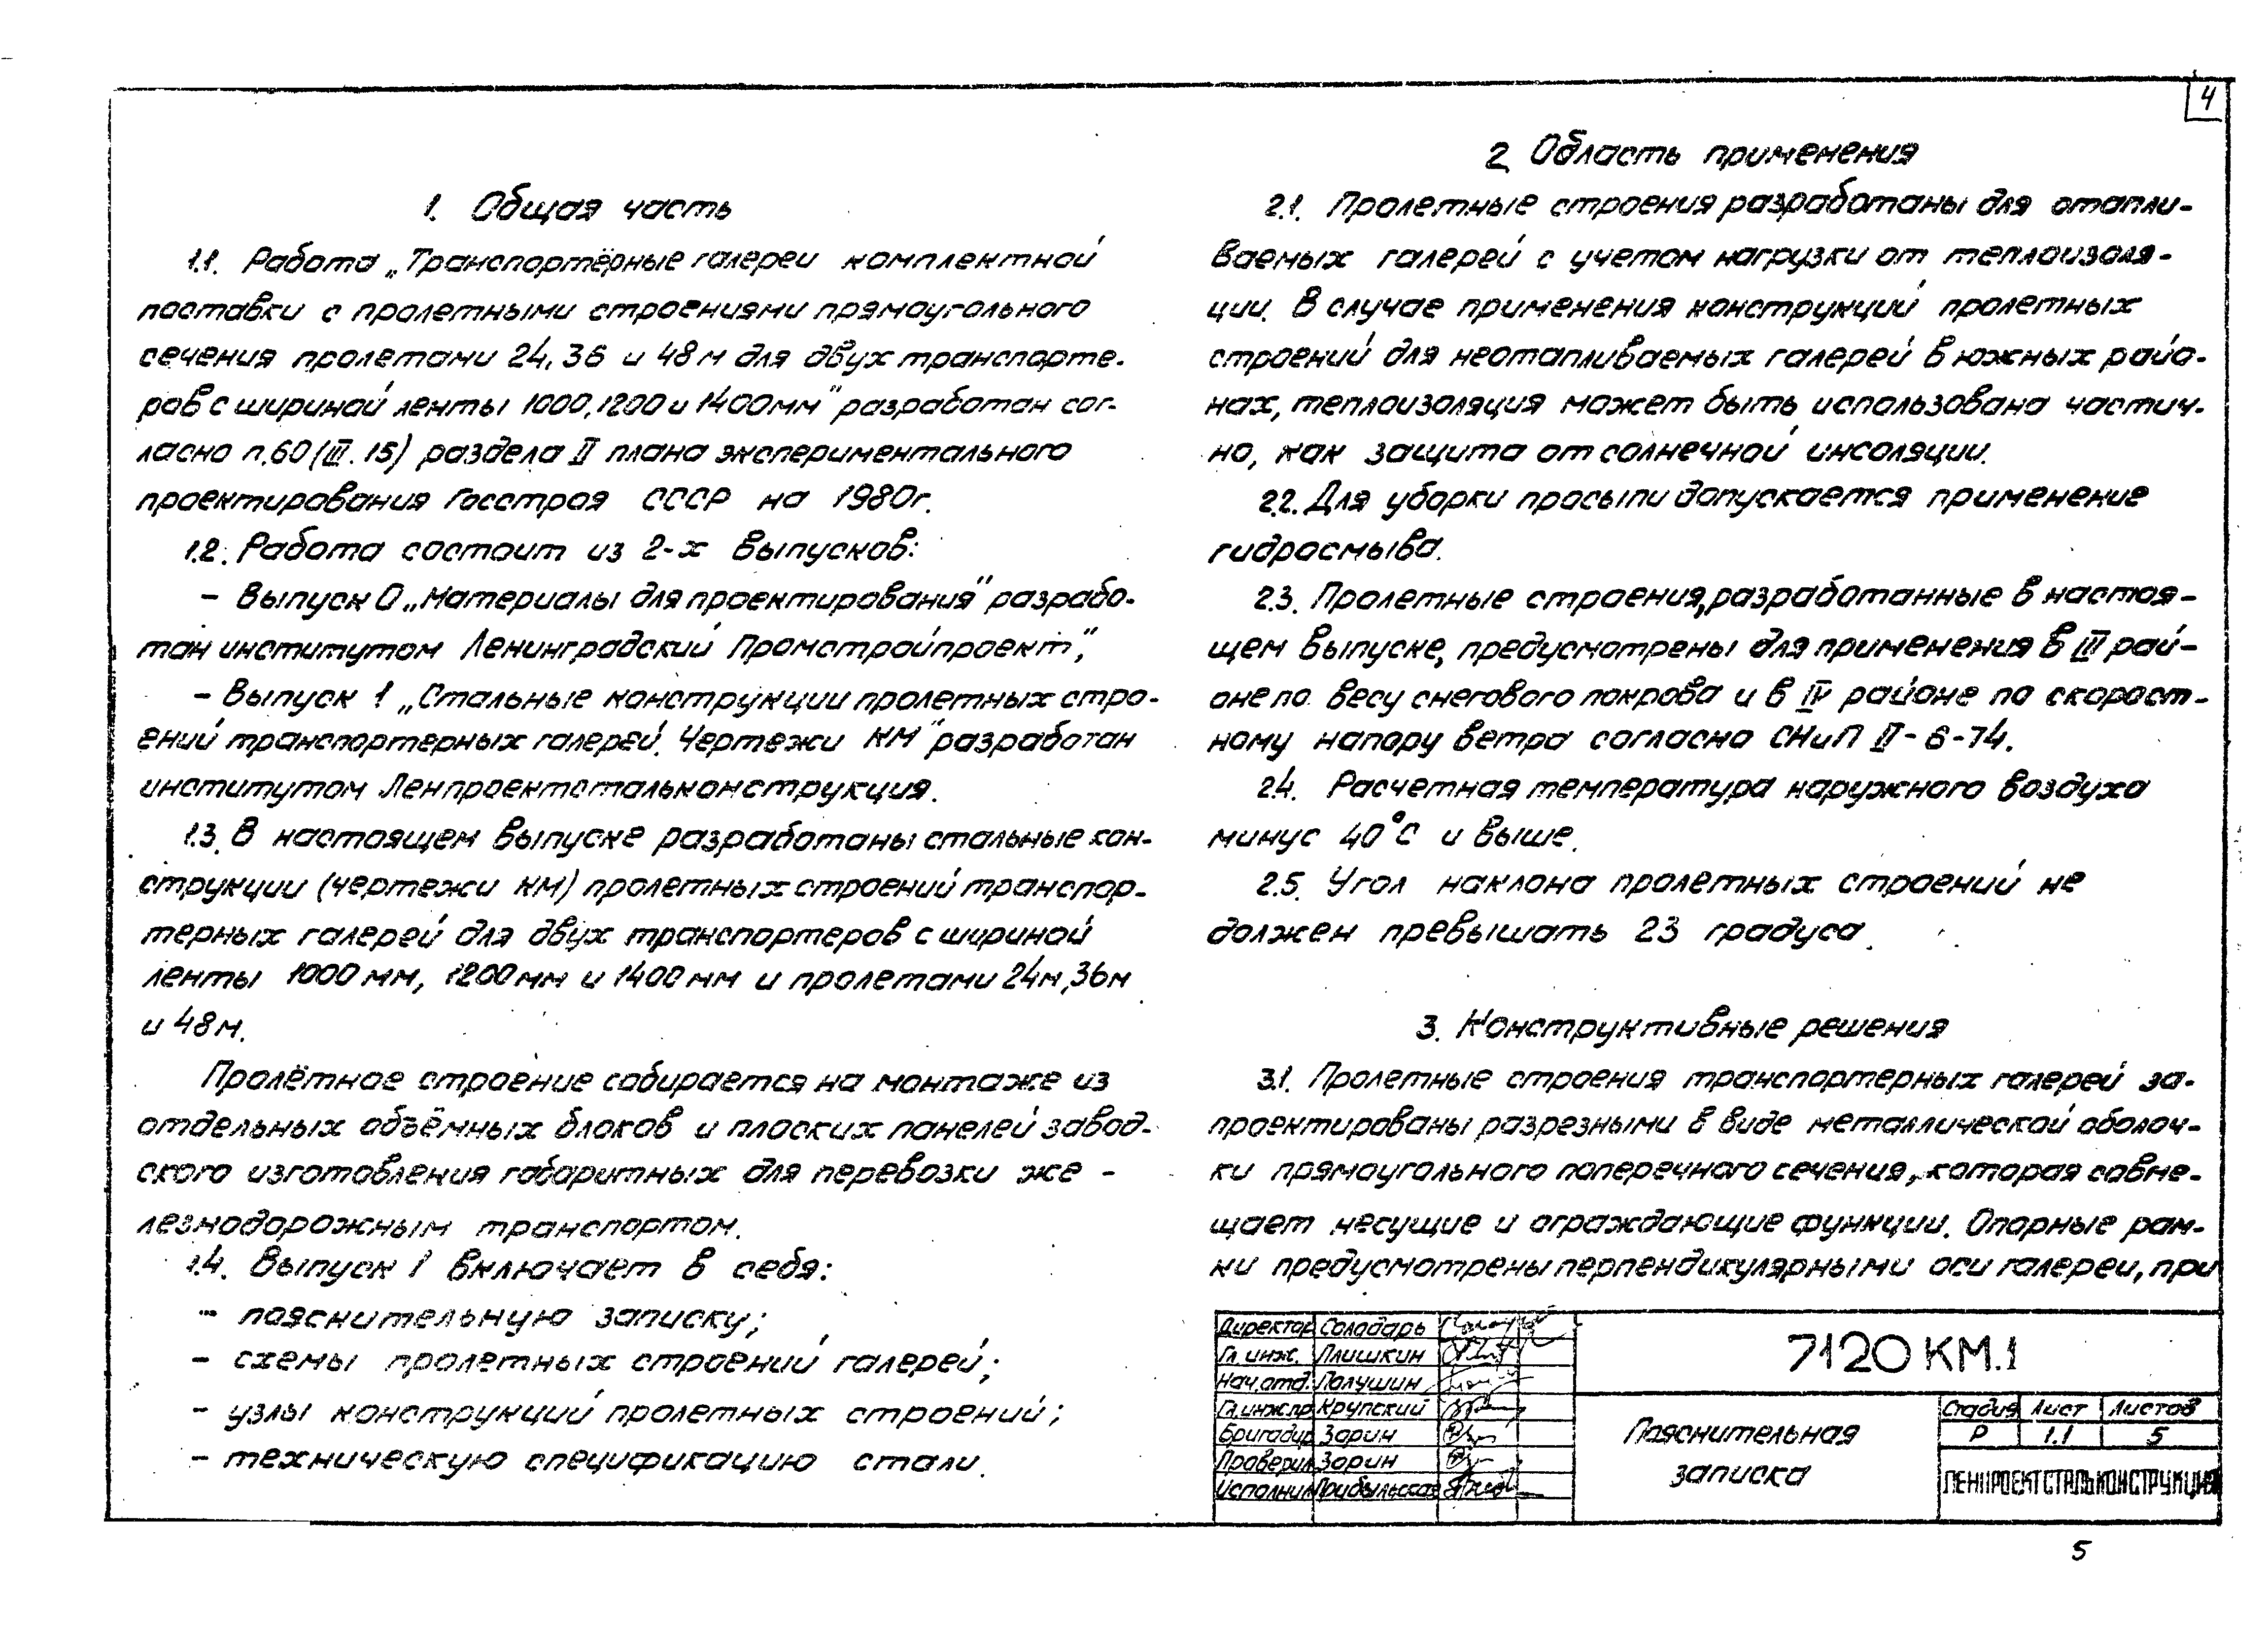 4
1. Общая часть
1.1. Работа „Транспортёрные галереи комплектной
поставки с пролетными строениями прямоугольного
сечения пролетами 24, 36 и 48 м для двух транспорте-
ров с шириной ленты 1000, 1200 и 1400 мм" разработан сог-
ласно п.60 (III.15) раздела II плана экспериментального
проектирования Госстроя СССР на 1980г.
1.2. Работа состоит из 2-х выпусков:
- Выпуск 0 „Материалы для проектирования" разрабо-
тан институтом Ленинградский Промстройпроект",
- Выпуск 1 „Стальные конструкции пролетных стро-
ений транспортерных галерей. Чертежи КМ" разработан
институтом Ленпроектстальконструкция.
1.3. В настоящем выпуске разработаны стальные кон-
струкции (чертежи КМ) пролетных строений транспор-
терных галерей для двух транспортеров с шириной
ленты 1000 мм, 1200 мм и 1400 мм и пролетами 24м, 36м
и 48м.
Пролётное строение собирается на монтаже из
отдельных объёмных блоков и плоских панелей завод-
ского изготовления габаритных для перевозки же-
лезнодорожным транспортом.
1.4. Выпуск 1 включает в себя:
- пояснительную записку;
- схемы пролетных строений галерей;
- узлы конструкций пролетных строений;
- техническую спецификацию стали.
2 Область применения
2.1. Пролетные строения разработаны для отапли-
ваемых галерей с учетом нагрузки от теплоизоля-
ции. В случае применения конструкций пролетных
строений для неотапливаемых галерей в южных райо-
нах, теплоизоляция может быть использована частич-
но, как защита от солнечной инсоляции.
2.2. Для уборки просыпи допускается применение
гидросмыва.
2.3. Пролетные строения, разработанные в настоя-
щем выпуске, предусмотрены для применения в III рай-
оне по весу снегового покрова и в IV районе по скорост-
ному напору ветра согласно СНиП II-6-74.
2.4. Расчетная температура наружного воздуха
минус 40°С и выше.
2.5. Угол наклона пролетных строений не
должен превышать 23 градуса.
3. Конструктивные решения
3.1. Пролетные строения транспортерных галерей за-
проектированы разрезными в виде металлической оболоч-
ки прямоугольного поперечного сечения, которая совме-
щает несущие и ограждающие функции. Опорные рам-
ки предусмотрены перпендикулярными оси галереи, при
Директор Соладарь
Гл. инж. Плишкин
Нач. отд. Палушин
Гл.инж.пр Крупский
Бригадир Зорин
Проверил Зорин
Исполнил Прибыльская
7120 КМ.1
Пояснительная
записка
Стадия Лист Листов
Р 1.1 5
ЛЕНПРОЕКТСТАЛЬКОНСТРУКЦИЯ
5